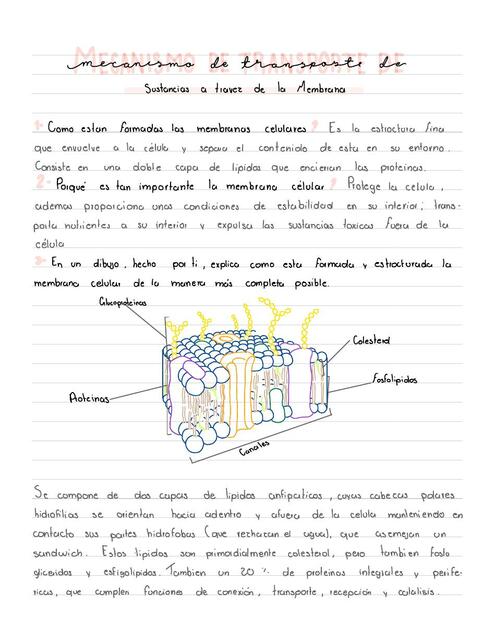 MECANISMO DE TRANSPORTE DE
mecanismo de transporte de
Sustancias a travez de la Membrana
1- Como estan formadas las membranas celulares? Es la estructura fina
que envuelve a la célula y separa el contenido de esta en su entorno.
Consiste en una doble capa de lipidos que encierran las proteinas.
2- Porqué es tan importante la membrana célular? Protege la celula,
ademas proporciona unas condiciones de estabilidad en su interior; trans-
porta nutrientes a su interior y expulsa las sustancias toxicas fuera de la
célula
3- En un dibujo, hecho por ti, explica como esta formada y estructurada la
membrana celular de la manera más completa posible.
Glucoproteinas
Colesterol
Fosfolipidos
Proteinas
Canales
Se compone de dos capas de lipidos anfipaticos, cuyas cabezas polares
hidrofilias se orientan hacia adentro y afuera de la celula manteniendo en
contacto sus partes hidrofobas (que rechazan el agua), que asemejan un
sandwich. Estos lipidos son primordialmente colesterol, pero tambien fosfo
gliceridos y esfigolipidos. Tambien un 20 % de proteinas integrales y perife-
ricas, que cumplen funciones de conexión, transporte, recepción y catalisis.